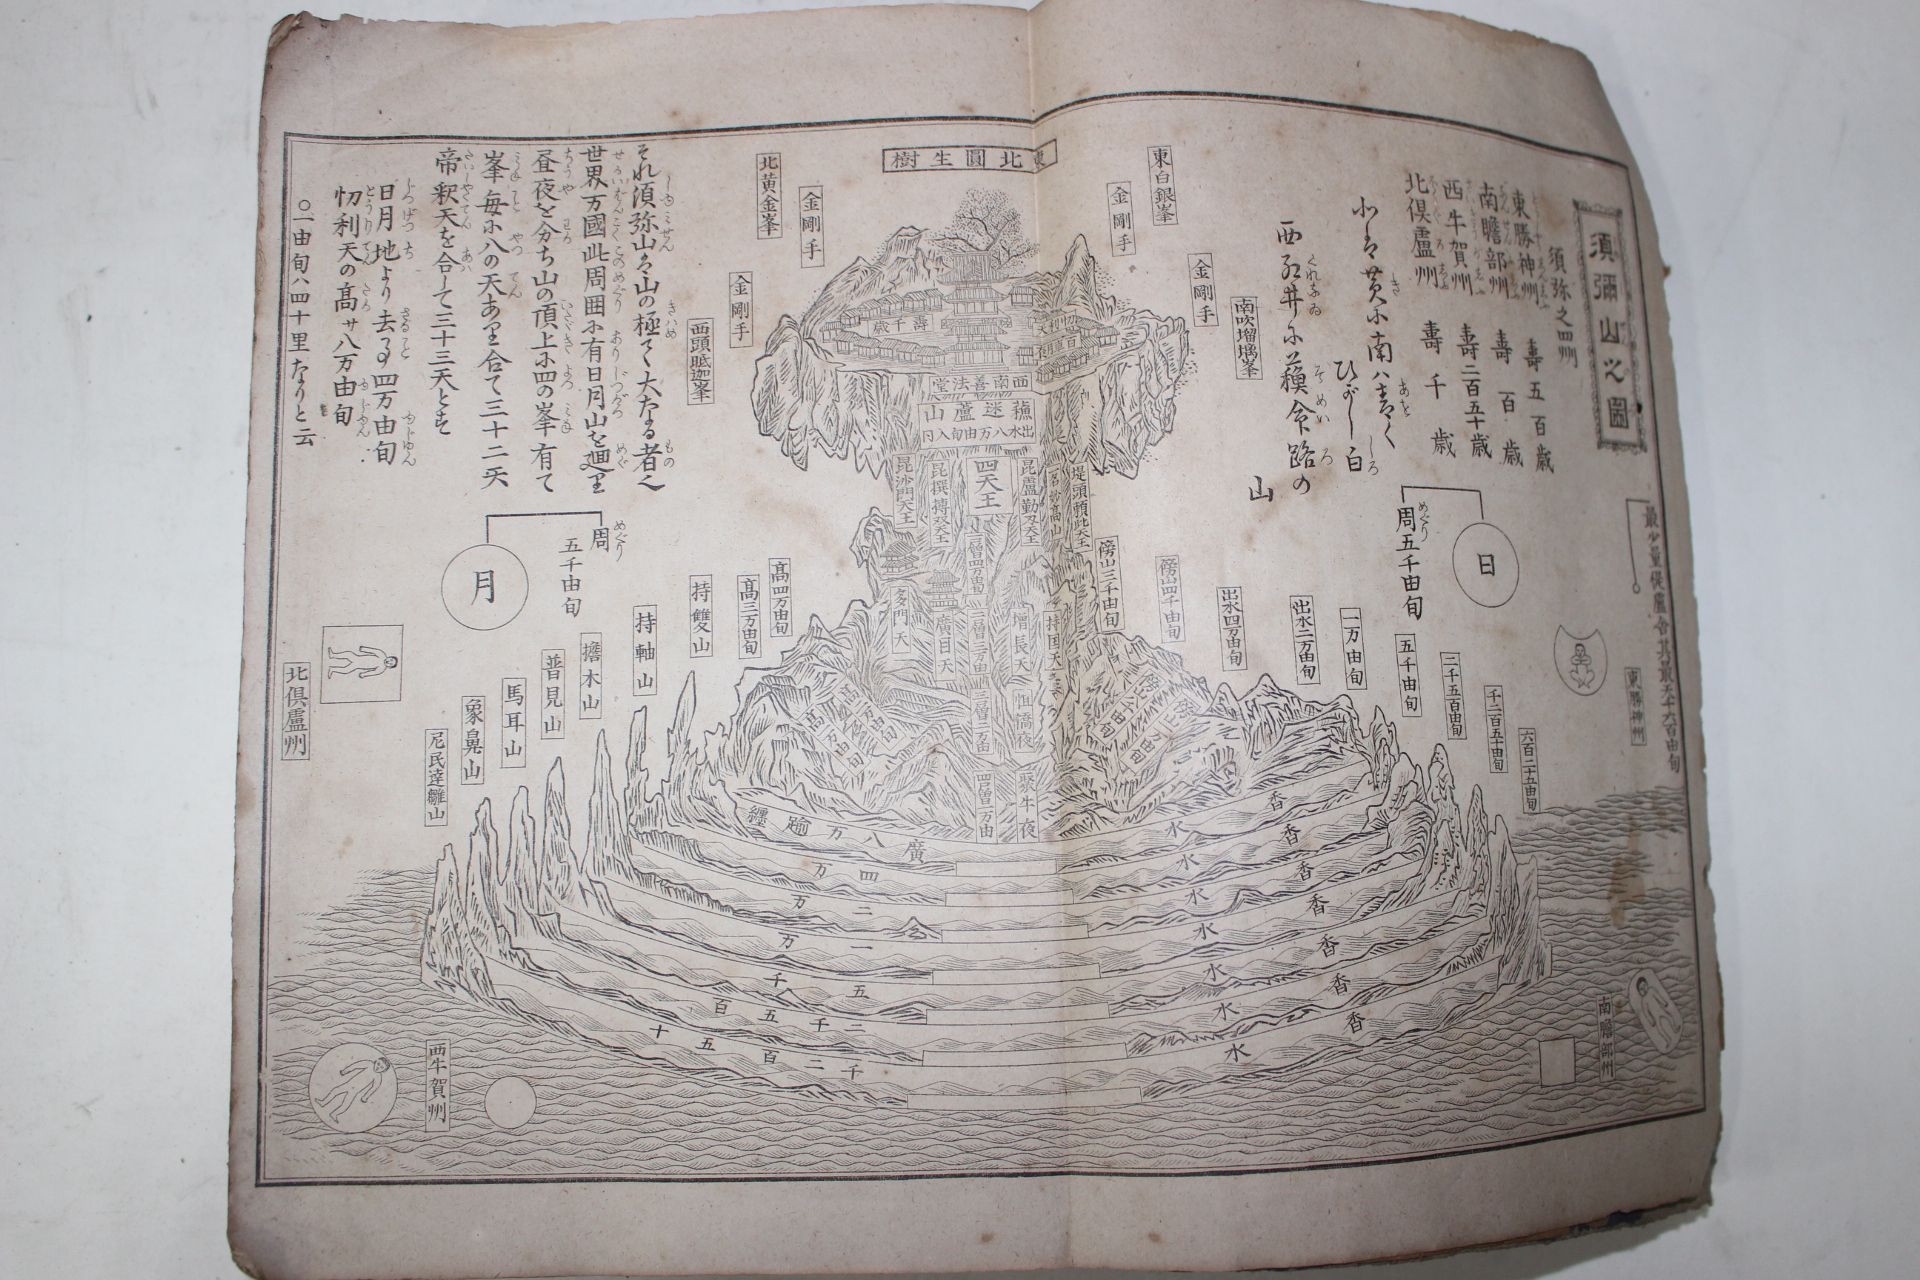 須彌山之圖
須弥之四州
東勝神州 壽五百歳
南瞻部州 壽百歳
西牛賀州 壽二百五十歳
北倶盧州 壽千歳
北ハ黄に南ハ青く
ひがし白
西くれなゐに蘓命路の
山
日
周五千由旬
東北圓生樹
東白銀峯
金剛手
金剛手
南吹瑠璃峯
北黄金峯
金剛手
金剛手
西頭胝迦峯
壽千歳
西南善法堂
蘓迷盧山
出水八万由旬入同
四天王
それ須弥山ハ山の極て大なる者也
世界万國此周囲に有日月山を廻り
昼夜を分ち山の頂上に四の峯有て
峯毎に八の天あり合て三十二天
帝釈天を合して三十三天とす
日月地より去る事四万由旬
忉利天の高サ八万由旬
○一由旬ハ四十里なりと云
月
周
五千由旬
多門天
廣目天
増長天
持国天
三層四万由旬
傍山三千由旬
傍山四千由旬
出水四万由旬
出水二万由旬
一万由旬
五千由旬
二千五百由旬
千二百五十由旬
六百二十五由旬
高四万由旬
高三万由旬
持雙山
持軸山
擔木山
普見山
馬耳山
象鼻山
尼民達離山
北倶盧州
東勝神州
南瞻部州
西牛賀州
纒踰万八廣
万四
万二
万一
千五
百五千二
十五百二千
香水
香水
香水
香水
香水
香水
香水